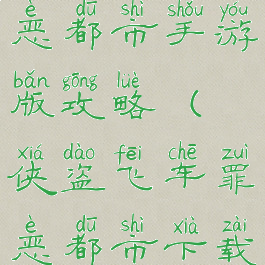 è dū shì shǒu yóu
恶都市手游
bǎn gōng luè
版攻略（
xiá dào fēi chē zuì
侠盗飞车罪
è dū shì xià zài
恶都市下载